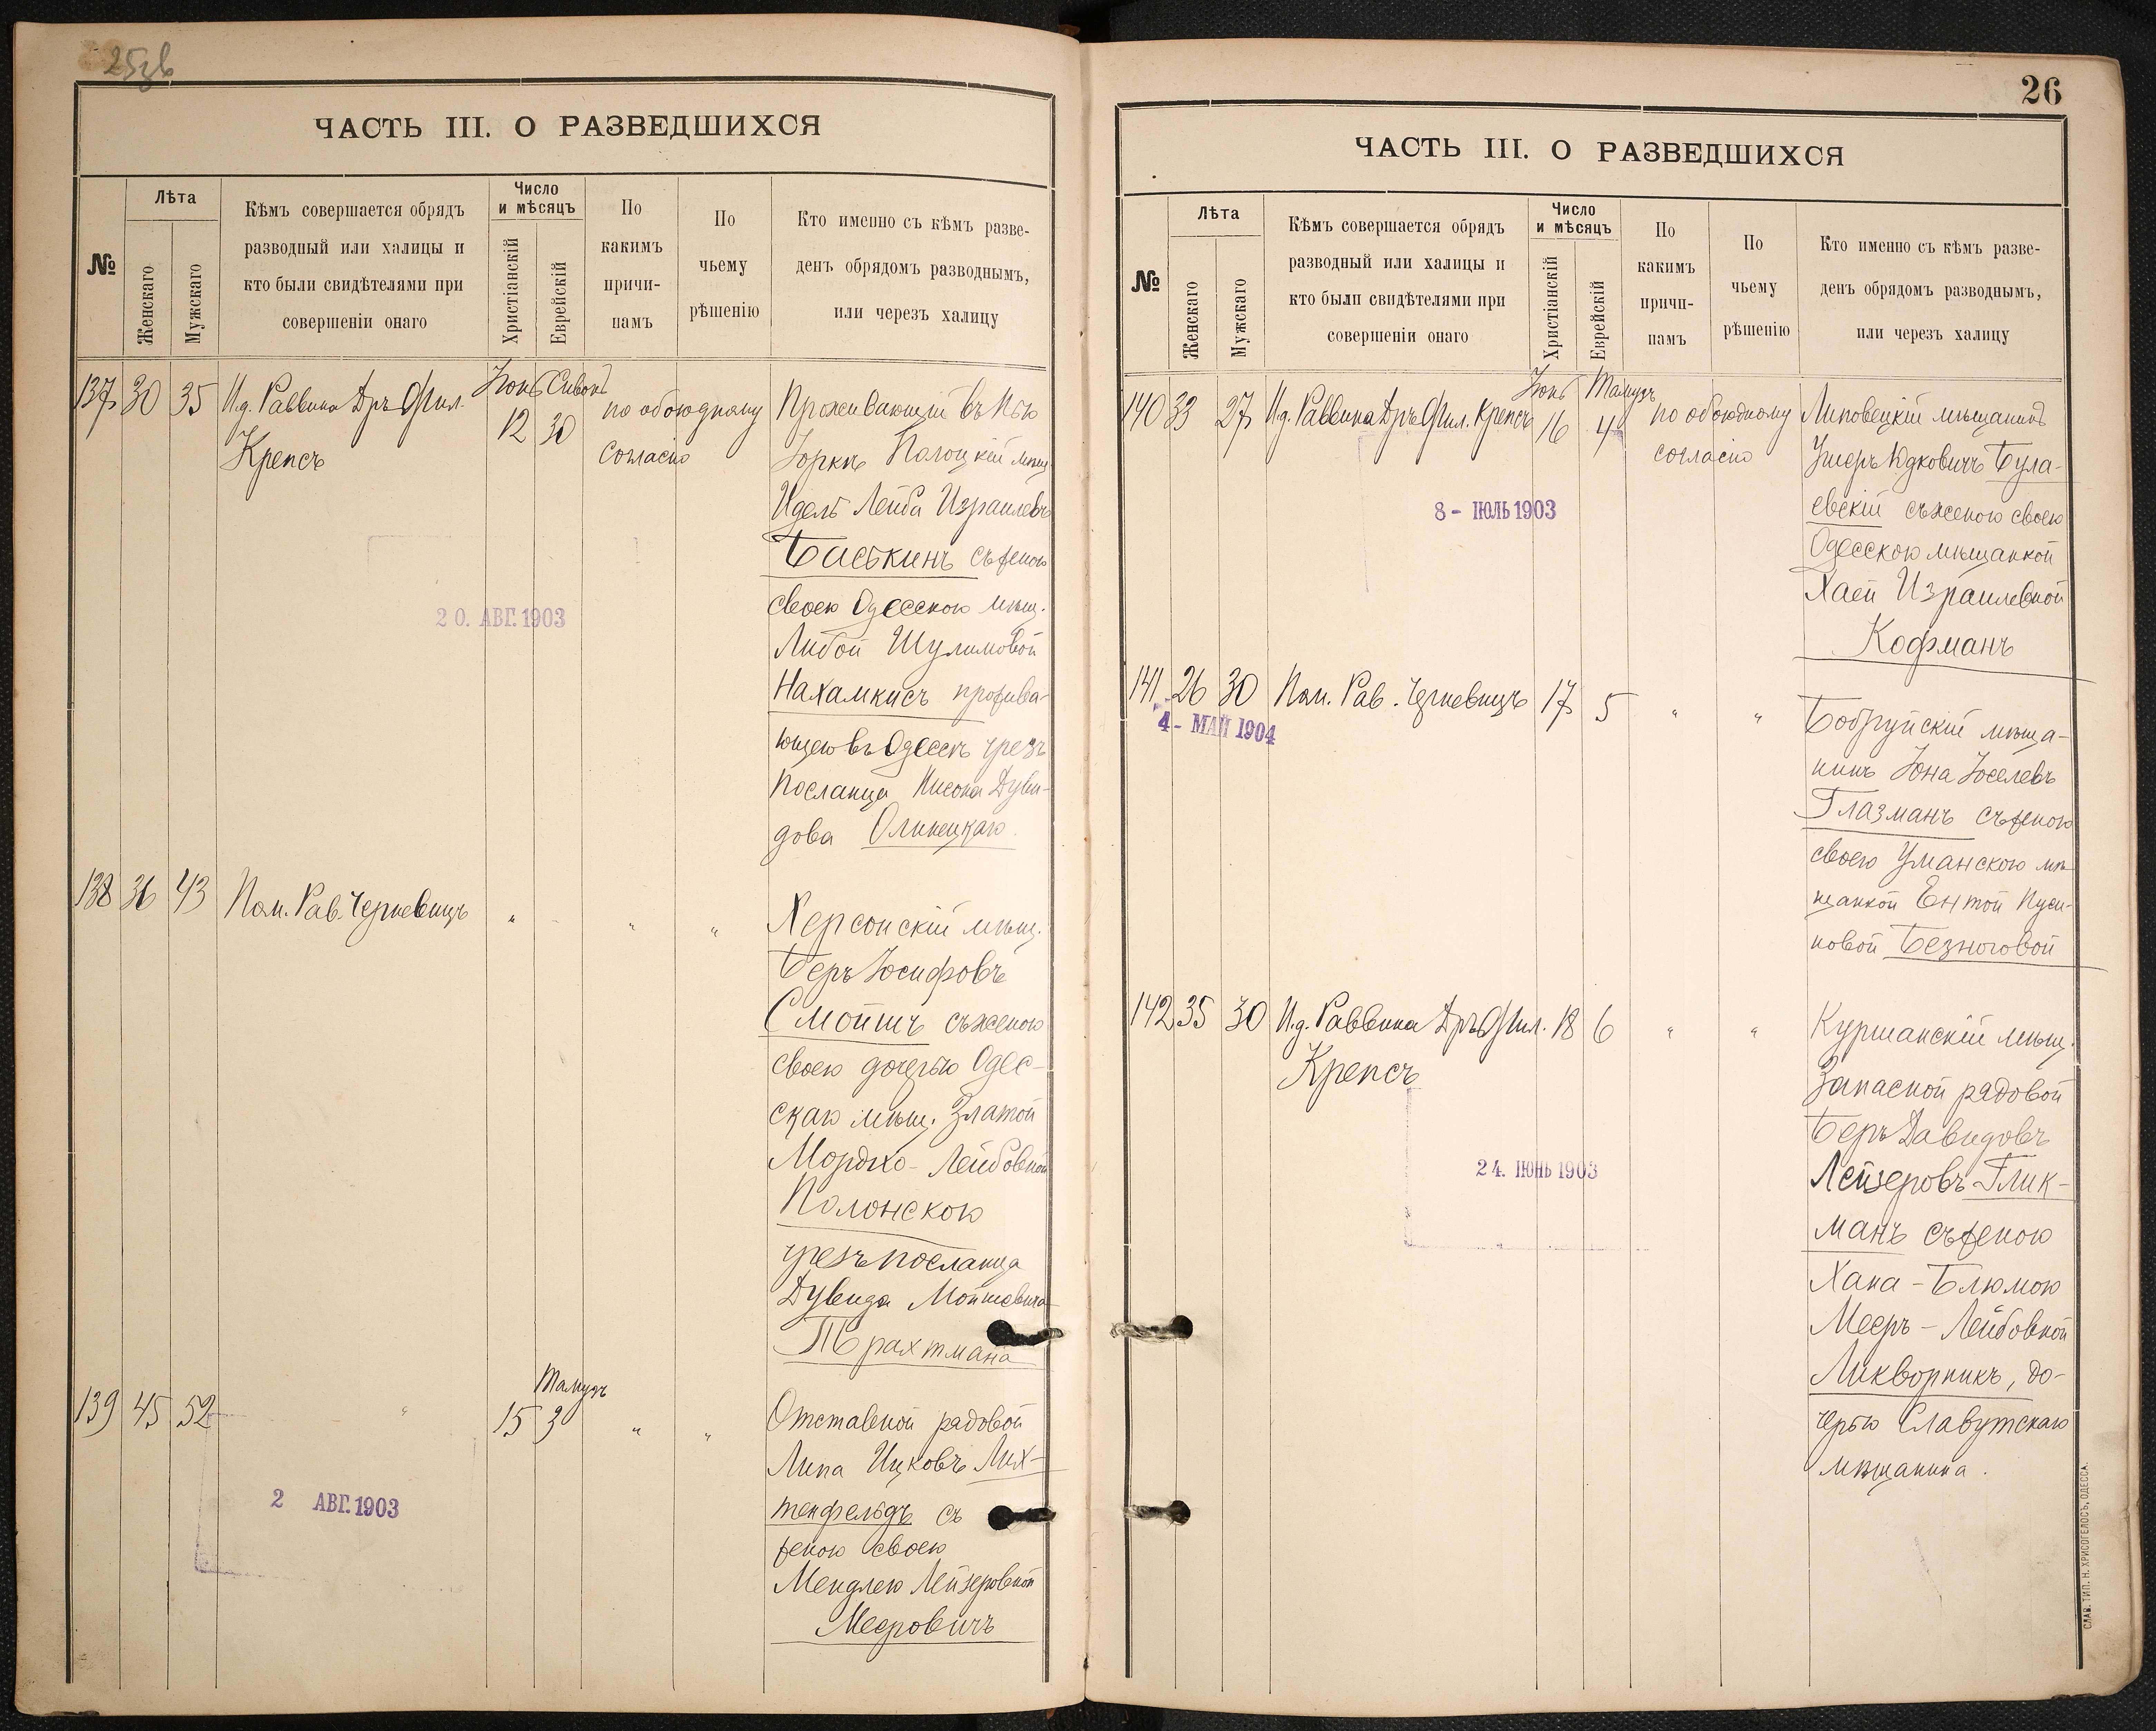 25зв
ЧАСТЬ III. О РАЗВЕДШИХСЯ
№
Лѣта
Женскаго
Мужскаго
Кѣмъ совершается обрядъ
разводный или халицы и
кто были свидѣтелями при
совершеніи онаго
Число
и мѣсяцъ
Христіанскій
Еврейскій
По
какимъ
причи-
намъ
По
чьему
рѣшенію
Кто именно съ кѣмъ разве-
денъ обрядомъ разводнымъ,
или черезъ халицу
137 30 35 И.д. Раввина Дръ Фил.
Крепсъ
Іюнь Сивонъ
12 30
по обоюдному
согласію
Проживающій въ Нью
Іоркѣ Полоцкій мѣщ.
Идель Лейба Израилевъ
Баськинъ съ женою
своею Одесскою мѣщ.
Либой Шулимовой
Нахамкисъ прожива-
ющею въ Одессѣ чрезъ
посланца Нисона Дуви-
дова Олинецкаго.
20. АВГ. 1903
138 36 43 Пом. Рав. Черневицъ " - " "
Херсонскій мѣщ.
Беръ Іосифовъ
Смойшъ съ женою
своею дочерью Одес-
скаго мѣщ. Златой
Мордко-Лейбовной
Полонскою
чрезъ посланца
Дувида Мошковича
Трахтмана
139 45 52 " 15
Тамузъ
3 " "
Отставной рядовой
Липа Ицковъ Лих-
тенфельдъ съ
женою своею
Мендлею Лейзеровной
Мееровичъ
2 АВГ. 1903
26
ЧАСТЬ III. О РАЗВЕДШИХСЯ
№
Лѣта
Женскаго
Мужскаго
Кѣмъ совершается обрядъ
разводный или халицы и
кто были свидѣтелями при
совершеніи онаго
Число
и мѣсяцъ
Христіанскій
Еврейскій
По
какимъ
причи-
намъ
По
чьему
рѣшенію
Кто именно съ кѣмъ разве-
денъ обрядомъ разводнымъ,
или черезъ халицу
140 33 27 И.д. Раввина Дръ Фил. Крепсъ
Іюнь Тамузъ
16 4
по обоюдному
согласію
Липовецкій мѣщанинъ
Ушеръ Юдковичъ Була-
евскій съ женою своею
Одесскою мѣщанкой
Хаей Израилевной
Кофманъ
8 - ІЮЛЬ 1903
141 26 30 Пом. Рав. Черневицъ 17 5 " "
4 - МАЙ 1904
Бобруйскій мѣща-
нинъ Іона Іоселевъ
Глазманъ съ женою
своею Уманскою мѣ-
щанкой Ентой Нуси-
новой Безноговой
142 35 30 И.д. Раввина Дръ Фил. 18 6 " "
Крепсъ
Куршанскій мѣщ.
Запасной рядовой
Беръ Давидовъ
Лейзеровъ Глик-
манъ съ женою
Хана-Блюмою
Мееръ-Лейбовной
Ликворникъ, до-
черью Славутскаго
мѣщанина.
24. ІЮНЬ 1903
СЛАВ. ТИП. Н. ХРИСОГЕЛОСЪ, ОДЕССА.